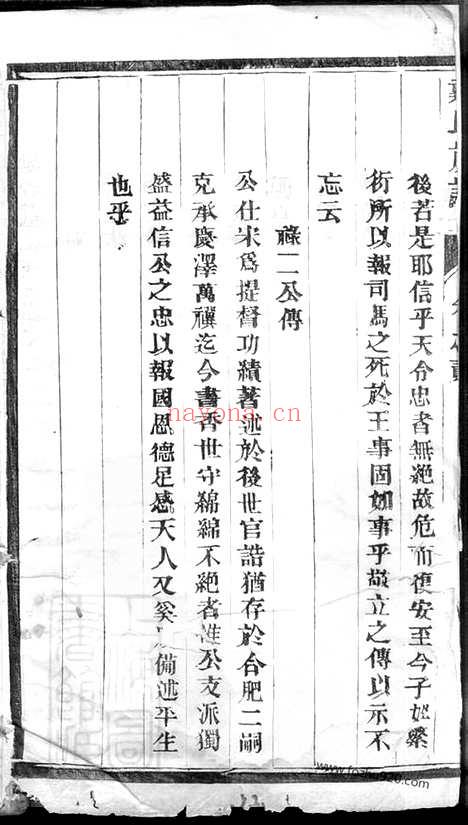 後若是耶信乎天令忠者無絕故危而復安至今子姓繁
衍所以報司馬之死於王事固如事乎敬立之傳以示不
忘云
祿二公傳
公仕宋為提督功績著述於後世官誥猶存於合肥二嗣
克承慶澤萬禩迄今書香世守綿綿不絕者惟公支派獨
盛益信公之忠以報國恩德足感天人又奚備述平生
也乎
nayona.cn